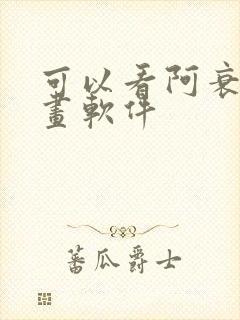 可以看阿衰
畫軟件
蕃瓜爵士